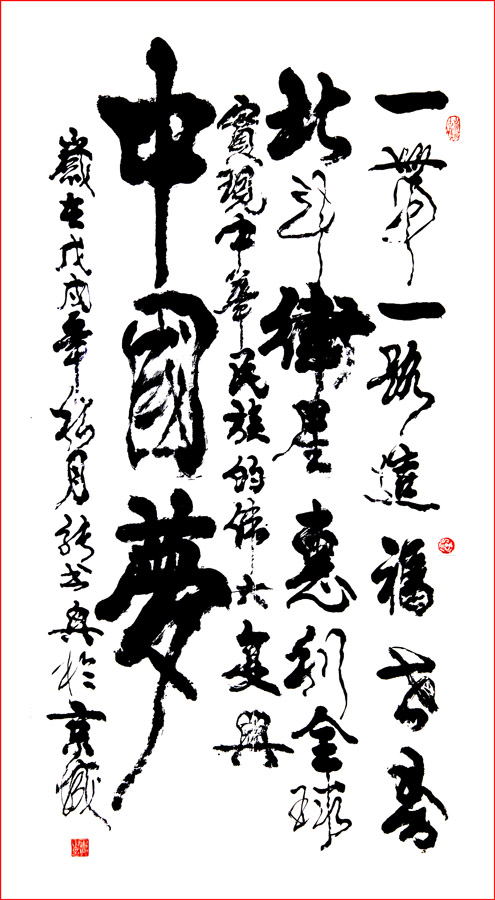 一帶一路造福世界
北斗衛星惠利全球
實現中華民族的偉大复興
中國夢
歲在戊戌年月書於京城